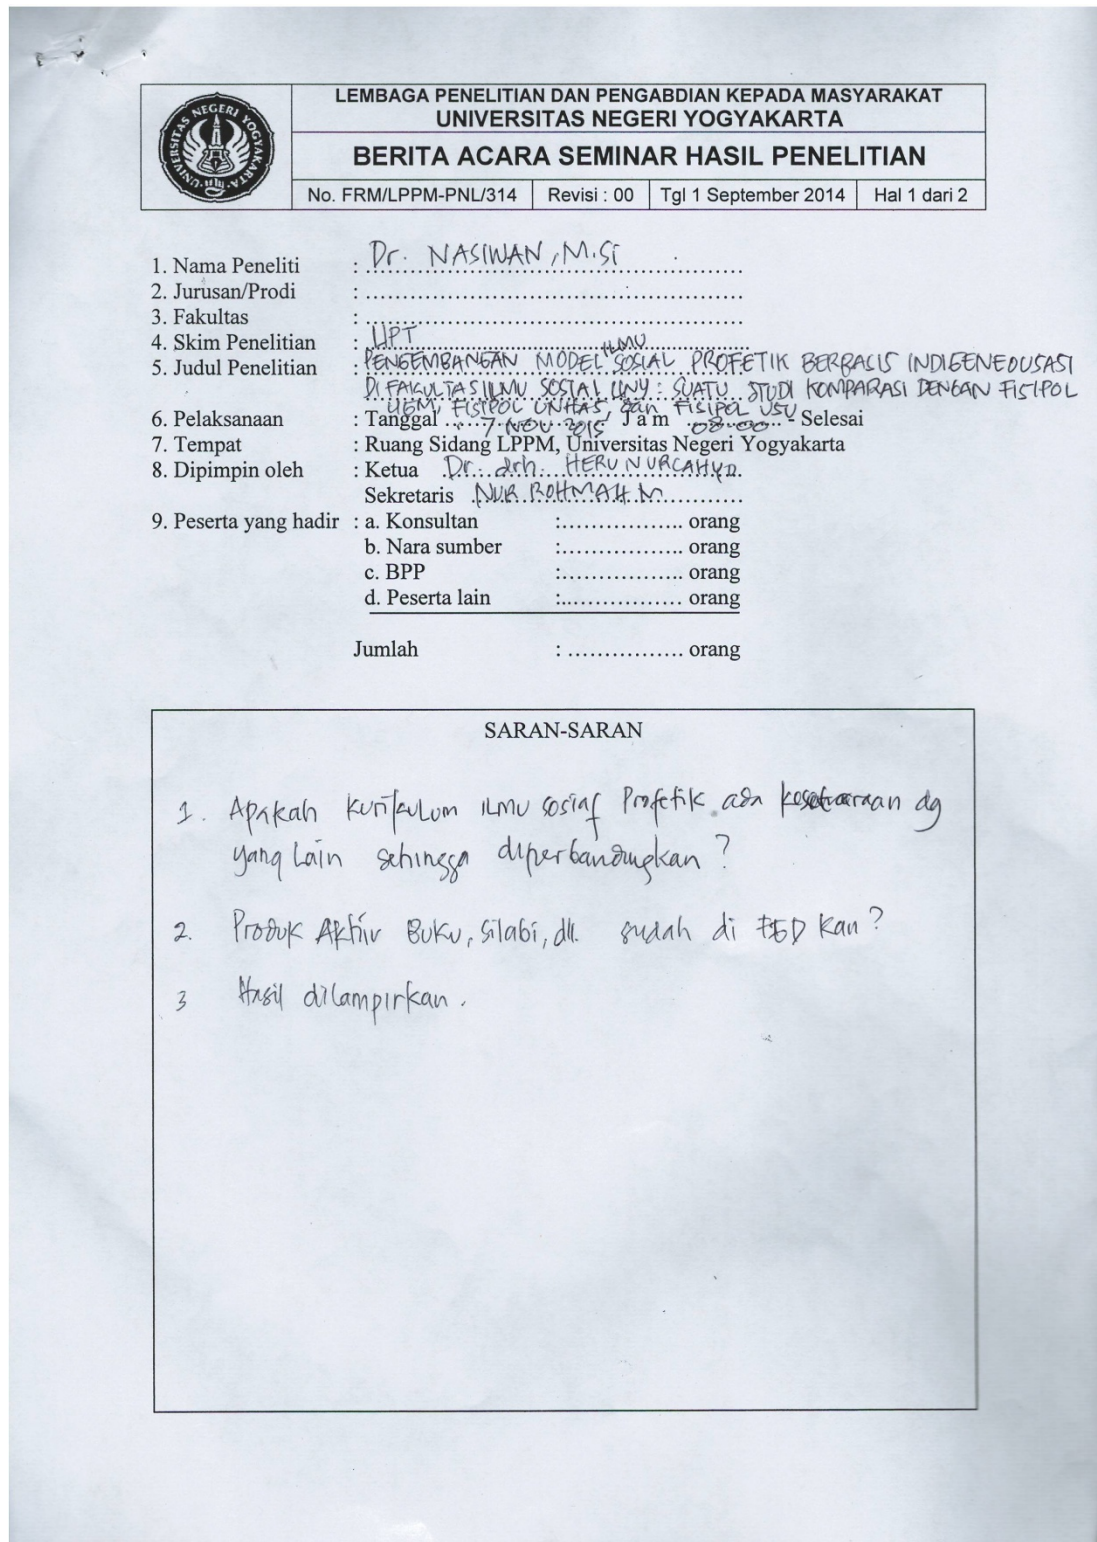 UNIVERSITAS NEGERI YOGYAKARTA
LEMBAGA PENELITIAN DAN PENGABDIAN KEPADA MASYARAKAT
UNIVERSITAS NEGERI YOGYAKARTA
BERITA ACARA SEMINAR HASIL PENELITIAN
No. FRM/LPPM-PNL/314 Revisi : 00 Tgl 1 September 2014 Hal 1 dari 2
1. Nama Peneliti : Dr. NASIWAN, M.Si
2. Jurusan/Prodi : ....................................................
3. Fakultas : ....................................................
4. Skim Penelitian : UPT
5. Judul Penelitian : PENGEMBANGAN MODEL ILMU SOSIAL PROFETIK BERBASIS INDIGENEOUSASI
DI FAKULTAS ILMU SOSIAL UNY : SUATU STUDI KOMPARASI DENGAN FISIPOL
UGM, FISIPOL UNHAS, dan FISIPOL USU
6. Pelaksanaan : Tanggal 7 NOV 2015 Jam 08.00 - Selesai
7. Tempat : Ruang Sidang LPPM, Universitas Negeri Yogyakarta
8. Dipimpin oleh : Ketua Dr. drh. HERU NURCAHYO
Sekretaris NUR ROHMAH M
9. Peserta yang hadir : a. Konsultan :................. orang
b. Nara sumber :................. orang
c. BPP :................. orang
d. Peserta lain :................. orang
Jumlah : ................ orang
SARAN-SARAN
1. Apakah kurikulum ilmu sosial Profetik ada kesetaraan dg
yang Lain sehingga diperbandingkan ?
2. Produk Akhir Buku, Silabi, dll. sudah di FGD kan ?
3 Hasil dilampirkan .